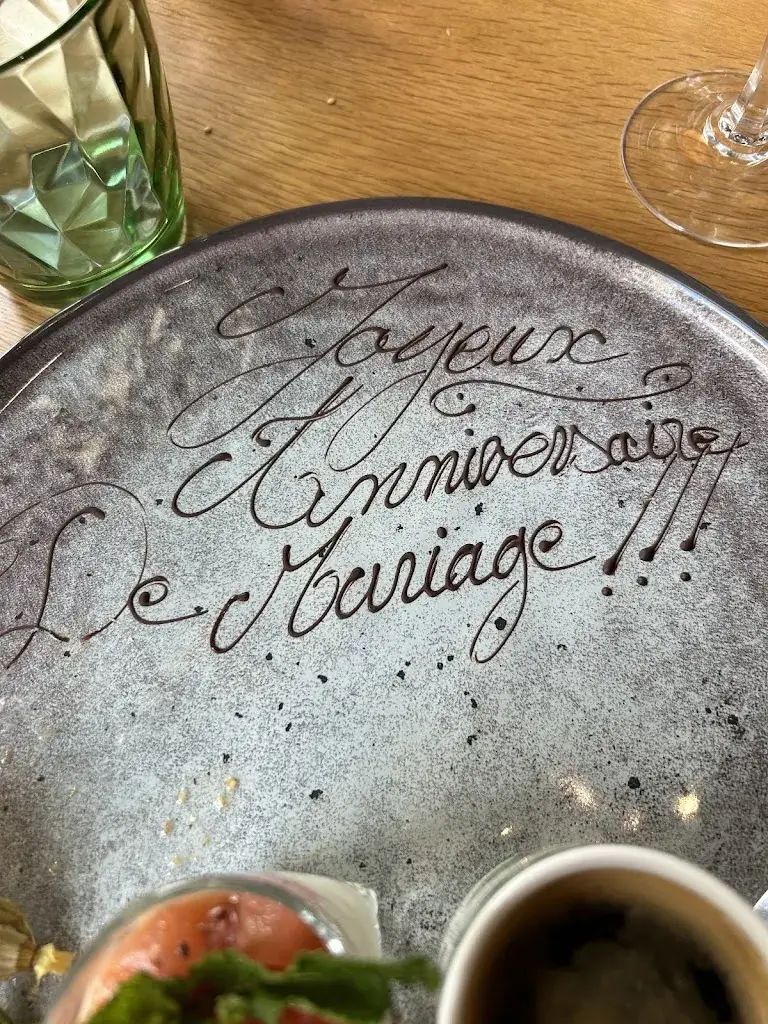 Joyeux
Anniversaire
De Mariage !!!